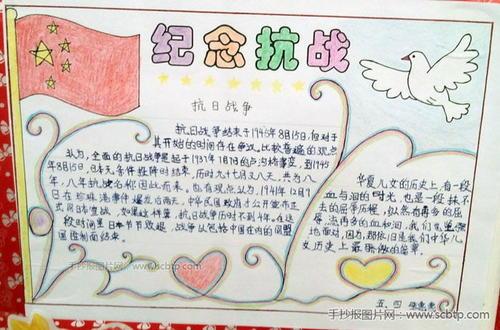 纪念抗战
抗日战争
抗日战争结束于1945年8月15日,但对于
其开始的时间存在争议。比较普遍的观点
认为,全面的抗日战争是起于1937年7月7日的卢沟桥事变,到1945
年8月15日,日本无条件投降时结束,历时九十七又八天,共为八
年,八年抗战名称因此而来。也有观点认为,1941年12月9日
在珍珠港事件爆发后两天,中华民国政府才公开宣布正
式向日本宣战,如果这样算,抗日战争历时不到4年。在这
段时间里日本节节败退,战争以包括中国在内的同盟
国胜利而结束。
华夏儿女的历史上,有一段
血与泪的时光,也是一段抹不
去的屈辱历程,纵然有再多的屈
辱,流再多的血和泪,我们也要强
地面对,因为,那依旧是我们中华儿
女历史上最骄傲的篇章。
五、四
手抄报图片网-www.scbtp.com